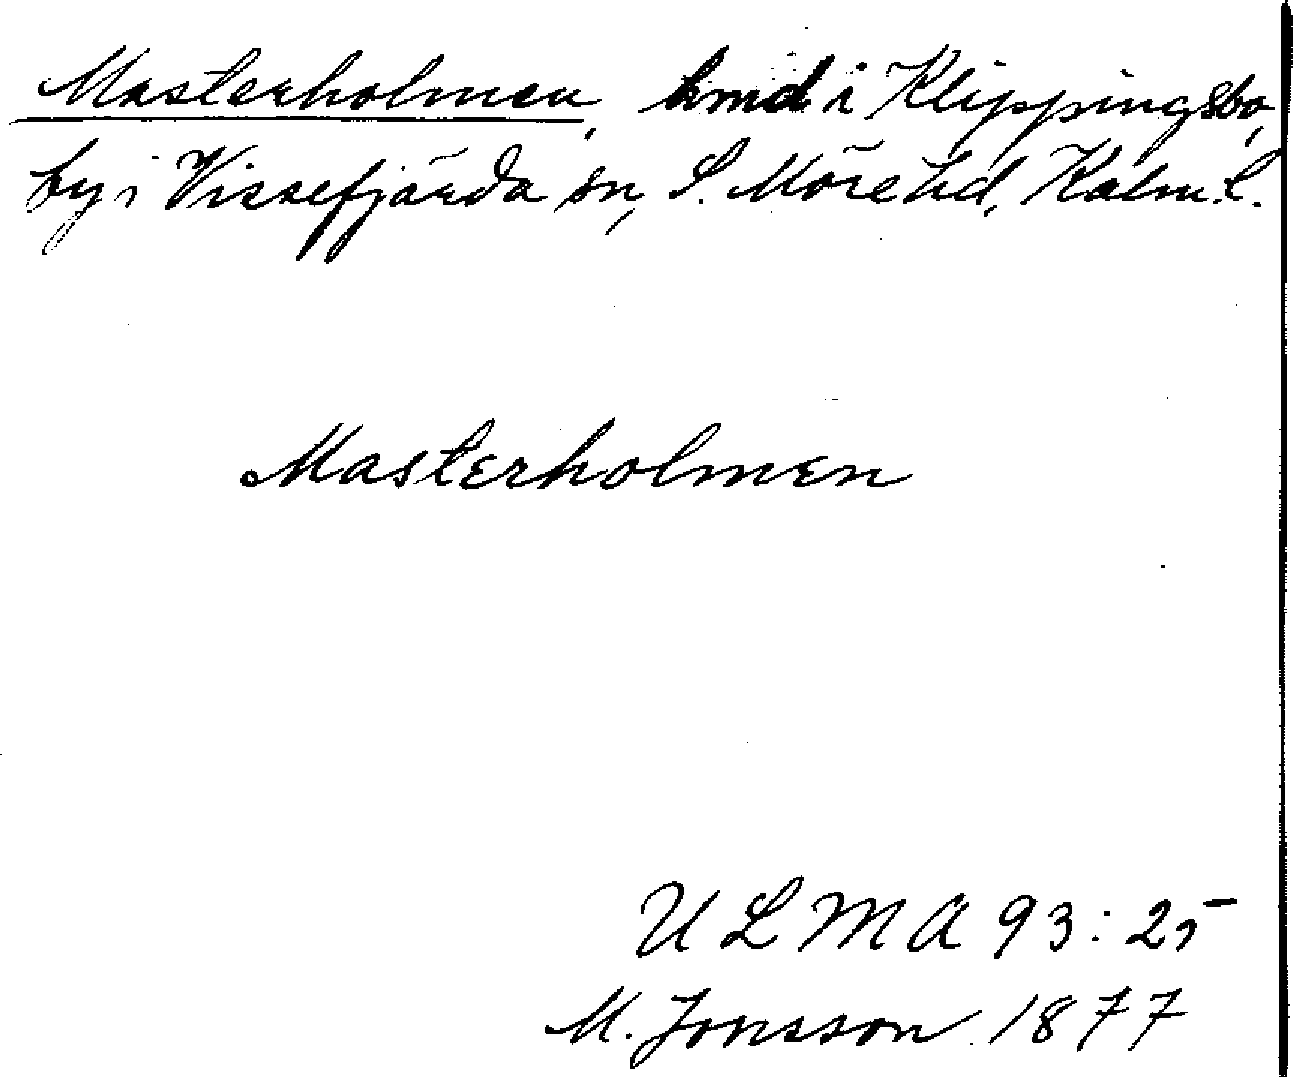 Masterholmen, hmd i Klippingsbo,
by i Vissefjärda sn, S. Möre hd, Kalm. l.
Masterholmen
ULMA 93:25
M. Jonsson 1877